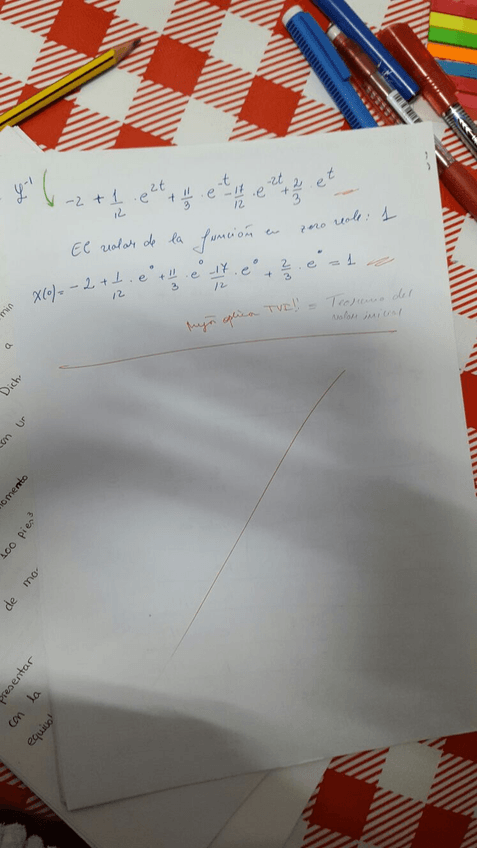 ℒ⁻¹ -2 + 1/12 · e^2t + 11/3 · e^-t - 17/12 · e^-2t + 2/3 · e^t
El valor de la función en zero vale: 1
X(0) = -2 + 1/12 · e^0 + 11/3 · e^0 -17/12 · e^0 + 2/3 · e^0 = 1
Mejor aplicar TVI!! = Teorema del
valor inicial
min
a
Dich
con ur
momento
100 piens
de ma
presentar
con la
equival